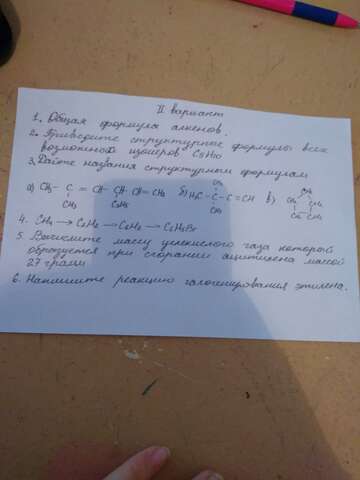 II вариант
1. Общая формула алкенов.
2. Приведите структурные формулы всех
возможных изомеров C5H10
3. Дайте названия структурным формулам
CH3
а) CH3 - C = CH - CH - CH = CH2 б) H3C - C - C ≡ CH в)
CH3 C2H5 CH3
4. CH4 → C2H2 → C2H4 → C2H5Br
5. Вычислите массу углекислого газа который
образуется при сгорании ацетилена массой
27 грамм
6. Напишите реакцию галогенирования этилена.